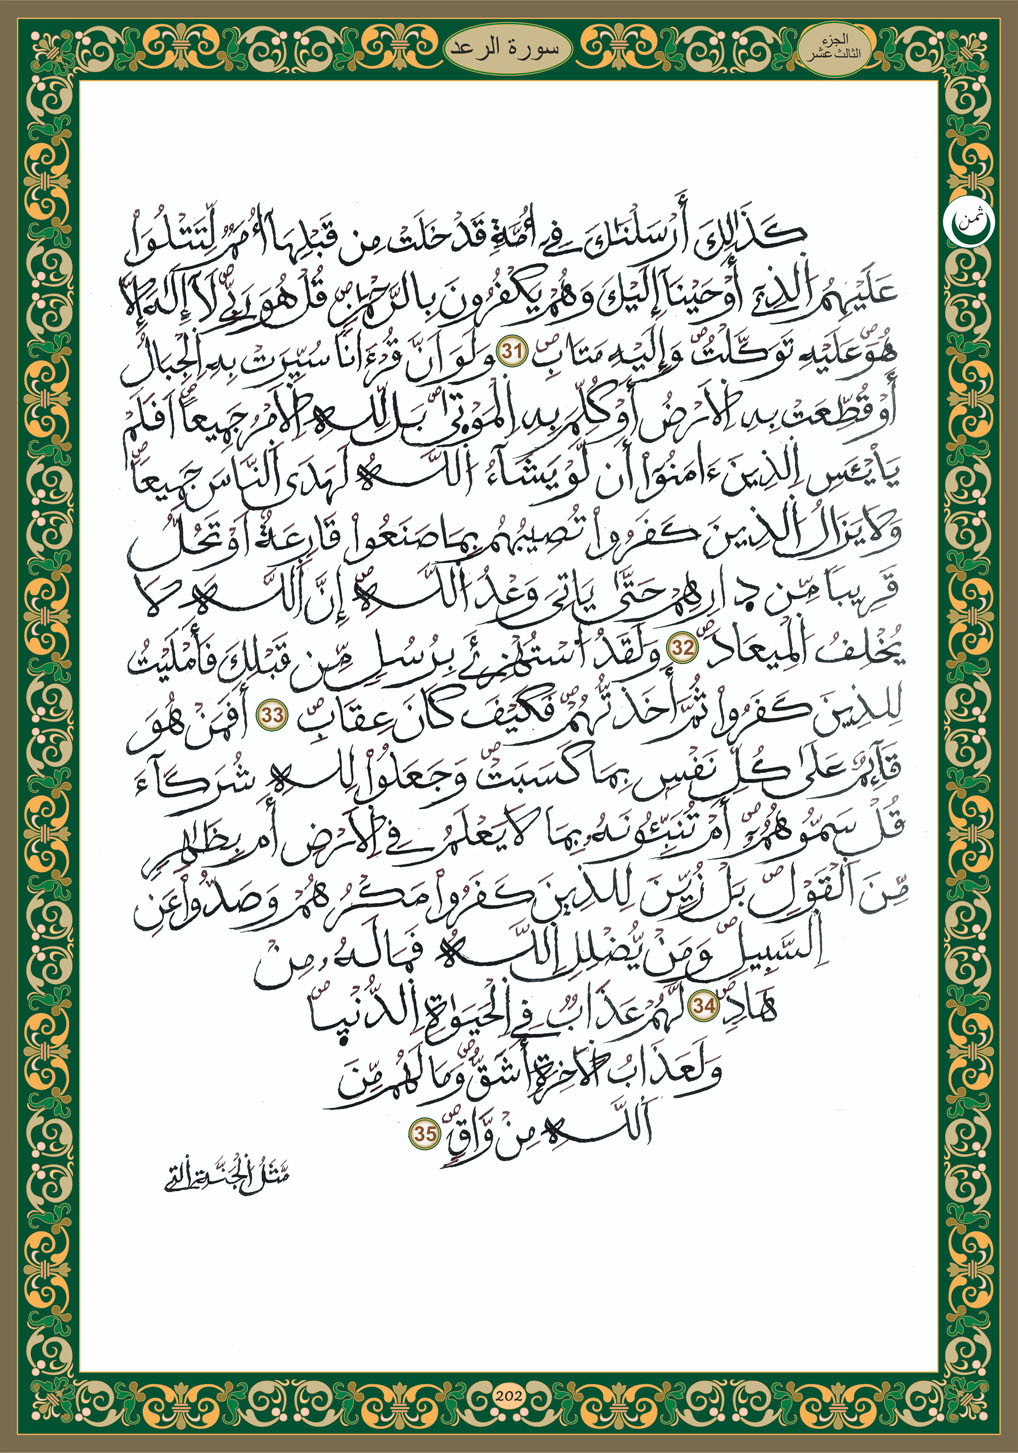 سورة الرعد
الجزء
الثالث عشر
ثمن
كَذَٰلِكَ أَرْسَلْنَٰكَ فِے أُمَّةٖ قَدْ خَلَتْ مِن قَبْلِهَآ أُمَمٞ لِّتَتْلُوَاْ
عَلَيْهِمُ اُلذِےٓ أَوْحَيْنَآ إِلَيْكَ وَهُمْ يَكْفُرُونَ بِالرَّحْمَٰنِۖ قُلْ هُوَ رَبِّے لَآ إِلَٰهَ إِلَّا
هُوَۖ عَلَيْهِ تَوَكَّلْتُۖ وَإِلَيْهِ مَتَابِۖ 31 وَلَوَ اَنَّ قُرْءَاناٗ سُيِّرَتْ بِهِ اِلْجِبَالُ
أَوْ قُطِّعَتْ بِهِ اِلَارْضُ أَوْ كُلِّمَ بِهِ اِلْمَوْتَىٰۖ بَل لِّلهِ اِلَامْرُ جَمِيعاًۖ اَفَلَمْ
يَاْيْـَٔسِ اِلذِينَ ءَامَنُوٓاْ أَن لَّوْ يَشَآءُ اُللَّهُ لَهَدَى اَلنَّاسَ جَمِيعاٗۖ
وَلَا يَزَالُ اُلذِينَ كَفَرُواْ تُصِيبُهُم بِمَا صَنَعُواْ قَارِعَةٌ اَوْ تَحُلُّ
قَرِيباٗ مِّن دِارِهِمْ حَتَّىٰ يَاتِيَ وَعْدُ اُللَّهِۖ إِنَّ اَللَّهَ لَا
يُخْلِفُ اُلْمِيعَادَۖ 32 وَلَقَدُ اُسْتُهْزِۓَ بِرُسُلٖ مِّن قَبْلِكَ فَأَمْلَيْتُ
لِلذِينَ كَفَرُواْ ثُمَّ أَخَذتُّهُمْۖ فَكَيْفَ كَانَ عِقَابِۖ 33 أَفَمَنْ هُوَ
قَآئِمٌ عَلَىٰ كُلِّ نَفْسِۢ بِمَا كَسَبَتْۖ وَجَعَلُواْ لِلهِ شُرَكَآءَ
قُلْ سَمُّوهُمُۥٓۖ أَمْ تُنَبِّـُٔونَهُۥ بِمَا لَا يَعْلَمُ فِے اِلَارْضِ أَم بِظَٰهِرٖ
مِّنَ اَلْقَوْلِۖ بَلْ زُيِّنَ لِلذِينَ كَفَرُواْ مَكْرُهُمْ وَصَدُّواْ عَنِ
اِلسَّبِيلِۖ وَمَنْ يُّضْلِلِ اِللَّهُ فَمَا لَهُۥ مِنْ
هَادٖۖ 34 لَّهُمْ عَذَابٞ فِے اِلْحَيَوٰةِ اِلدُّنْيِاۖ
وَلَعَذَابُ اُلَاخِرَةِ أَشَقُّۖ وَمَا لَهُم مِّنَ
اَللَّهِ مِنْ وَّاقٖۖ 35
مَّثَلُ اُلْجَنَّةِ اِلتِے
202